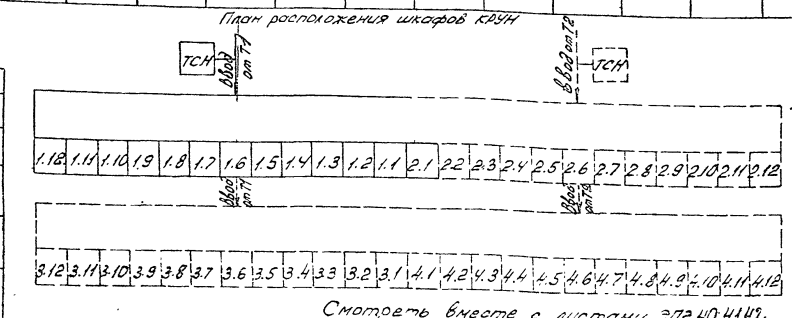 План расположения шкафов КРУН
ТСН
Ввод от Т1
Ввод от Т2
ТСН
1.12 1.11 1.10 1.9 1.8 1.7 1.6 1.5 1.4 1.3 1.2 1.1 2.1 2.2 2.3 2.4 2.5 2.6 2.7 2.8 2.9 2.10 2.11 2.12
Ввод от Т1
Ввод от Т2
3.12 3.11 3.10 3.9 3.8 3.7 3.6 3.5 3.4 3.3 3.2 3.1 4.1 4.2 4.3 4.4 4.5 4.6 4.7 4.8 4.9 4.10 4.11 4.12
Смотреть вместе с листами